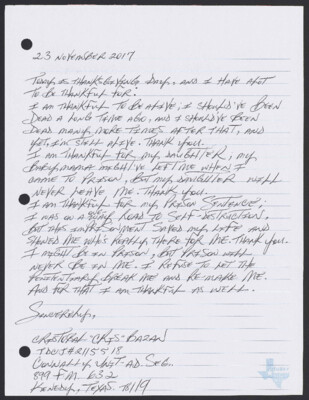 23 NOVEMBER 2017
TODAY IS THANKSGIVING DAY, AND I HAVE ALOT
TO BE THANKFUL FOR:
I AM THANKFUL TO BE ALIVE; I SHOULD'VE BEEN
DEAD A LONG TIME AGO, AND I SHOULD'VE BEEN
DEAD MANY MORE TIMES AFTER THAT, AND
YET, I'M STILL ALIVE. THANK YOU.
I AM THANKFUL FOR MY DAUGHTER; MY
BABY MAMA MIGHT'VE LEFT ME WHEN I
CAME TO PRISON, BUT MY DAUGHTER WILL
NEVER LEAVE ME. THANK YOU.
I AM THANKFUL FOR MY PRISON SENTENCE;
I WAS ON A ROAD TO SELF-DESTRUCTION,
BUT THIS IMPRISONMENT SAVED MY LIFE AND
SHOWED ME WHO'S REALLY THERE FOR ME. THANK YOU.
I MIGHT BE IN PRISON, BUT PRISON WILL
NEVER BE IN ME. I REFUSE TO LET THE
PENITENTIARY BREAK ME AND RE-MAKE ME.
AND FOR THAT I AM THANKFUL AS WELL.
SINCERELY,
"CRIS" BAZAN
TDCJ# 2115518
CONNALLY UNIT-AD. SEG.
899 FM 632
KENEDY, TEXAS 78119